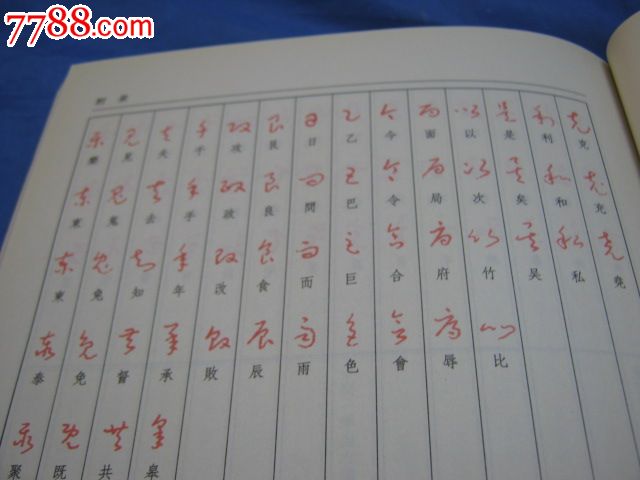 7788.com
附录
克 充 堯
利 和 私
是 矣 吴
以 次 竹 比
面 局 府 辱
令 合 會
乙 巴 巨 色
日 問 而 雨
艮 良 食 辰
攻 政 改 敗
手 年 承 皋
夫 去 知 督 共
見 鬼 兔 免 既
樂 東 泰 聚